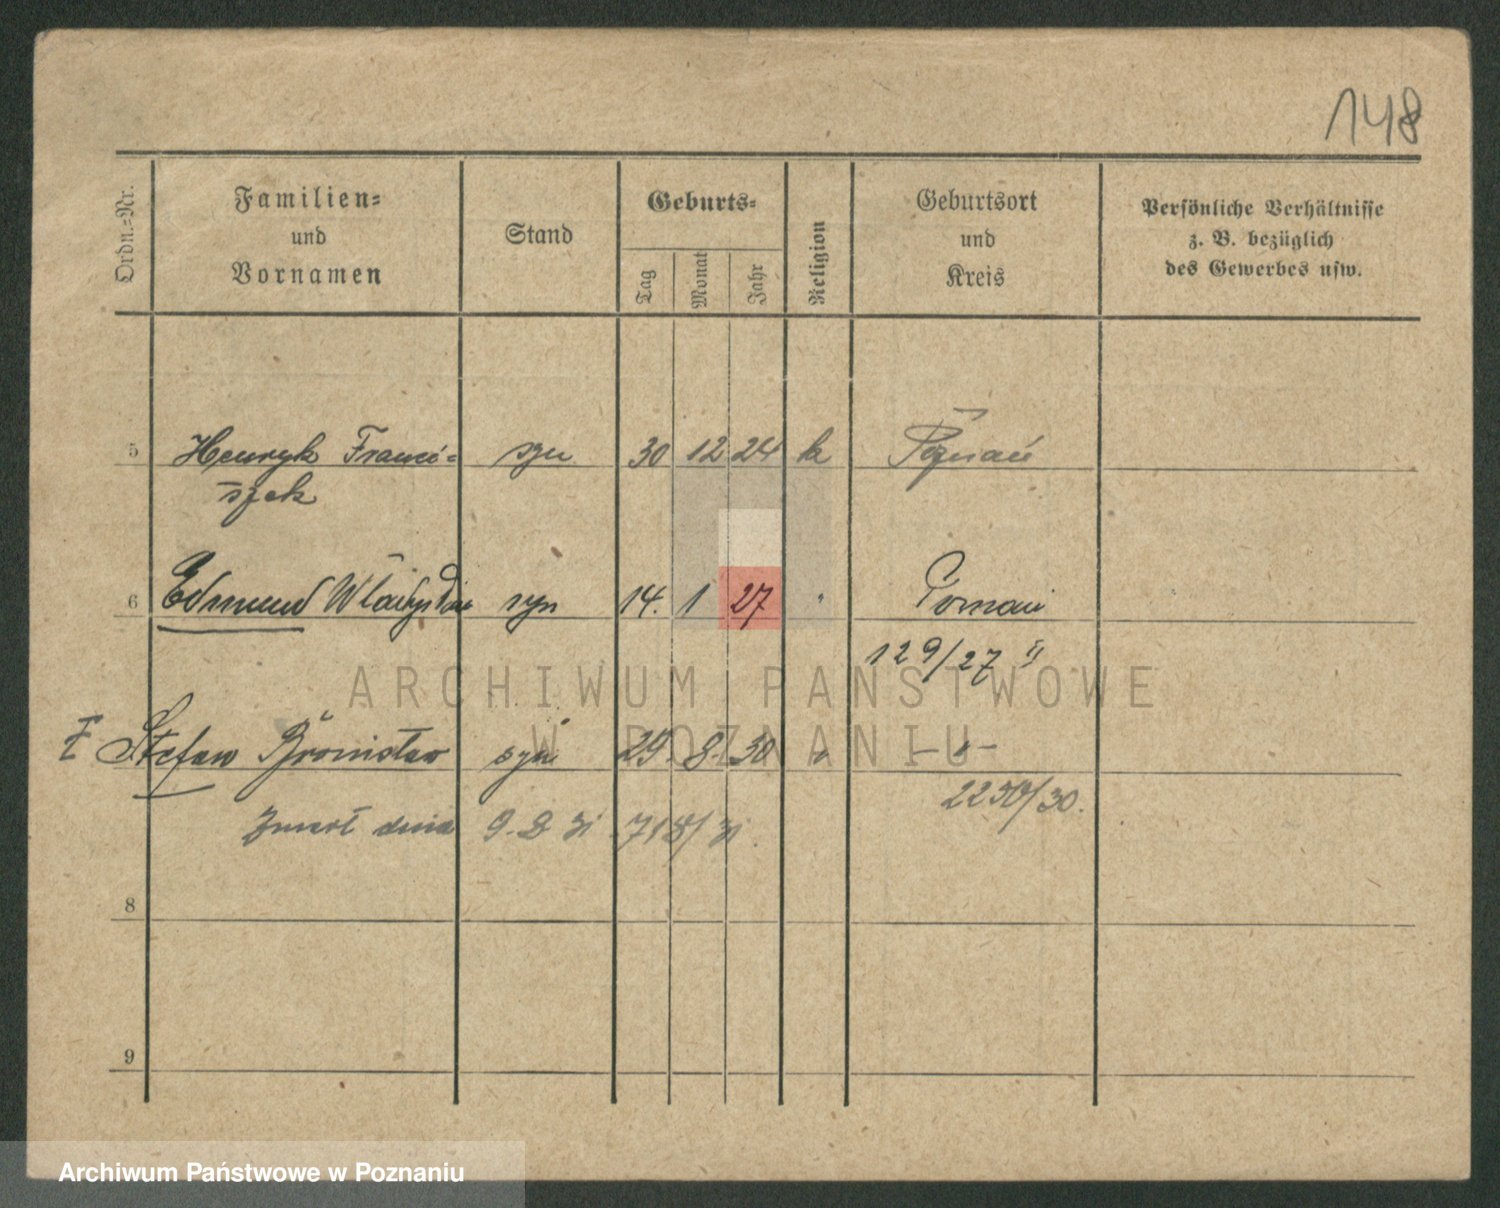 148
Ordn.-Nr.
Familien-
und
Vornamen
Stand
Geburts-
Tag
Monat
Jahr
Religion
Geburtsort
und
Kreis
Persönliche Verhältnisse
z. B. bezüglich
des Gewerbes usw.
5 Henryk Franci- syn 30 12 24 k Poznań
szek
6 Edmund Władysław syn 14. 1 27 " Poznań
129/27 II
ARCHIWUM PAŃSTWOWE
W POZNANIU
Stefan Bronisław syn 29. 8. 30 " — " —
2250/30.
Zmarł dnia 9. 2 31 718/31
8
9
Archiwum Państwowe w Poznaniu